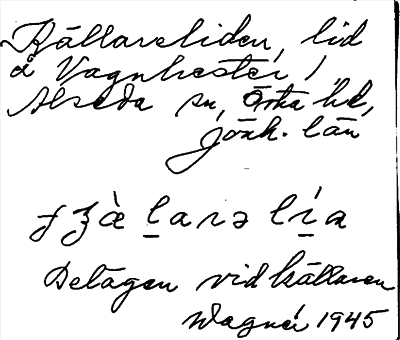 Källareliden, lid
å Vagnhester,
Alseda sn, Östra hd,
Jönk. län
Belägen vid källaren
Wagnér 1945